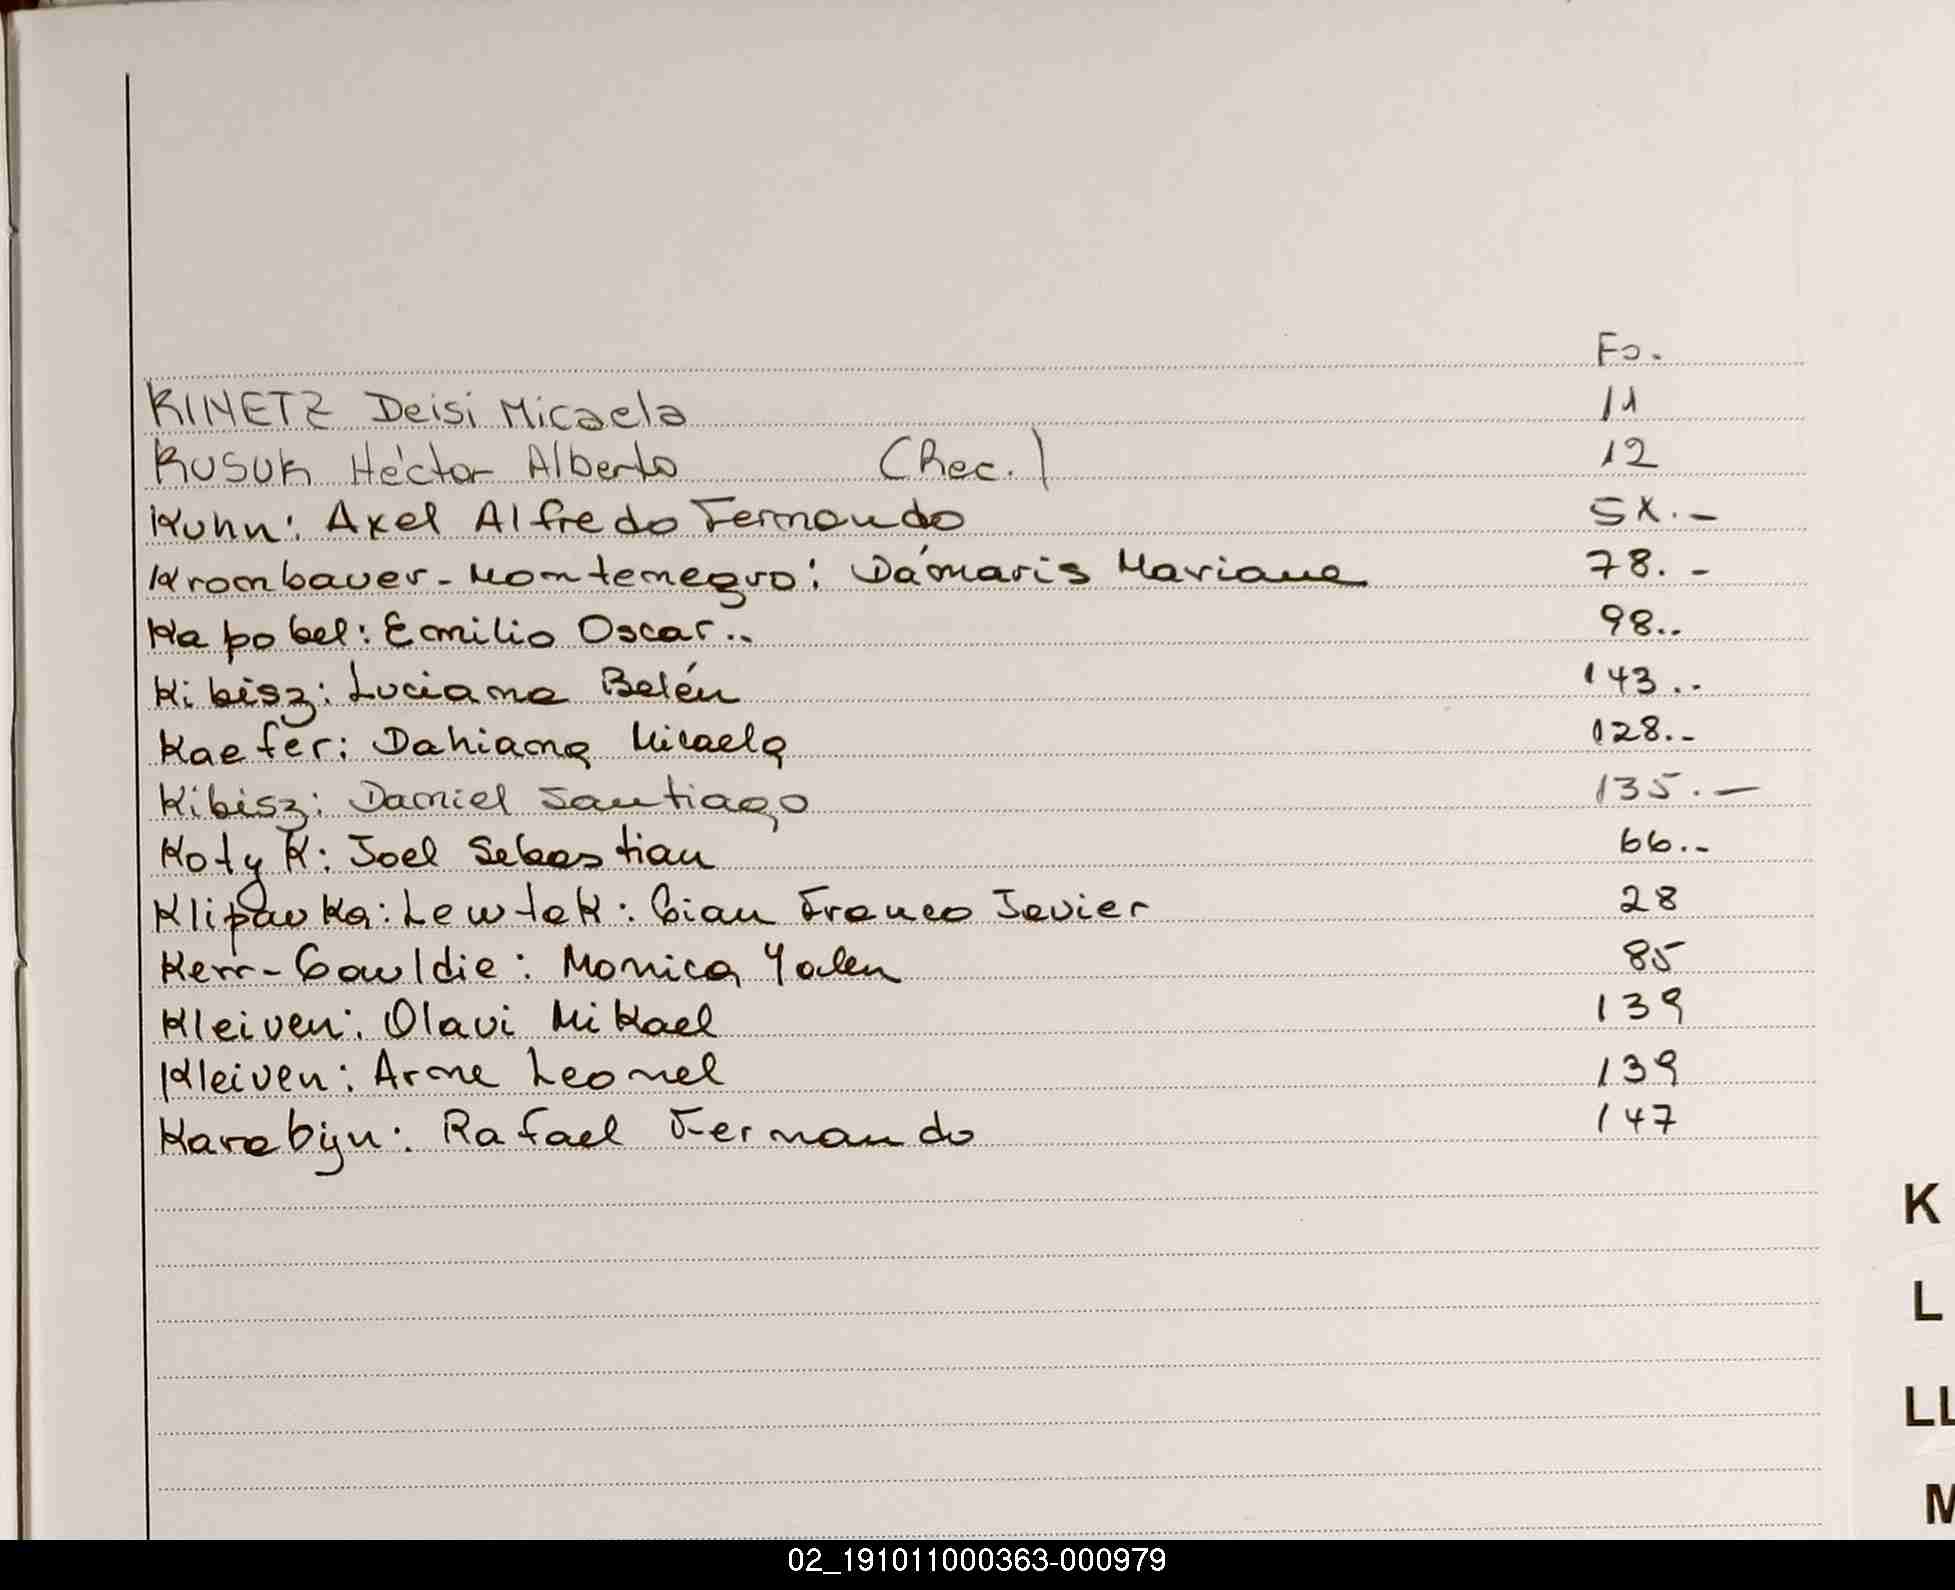 Fo.
KINETZ Deisi Micaela 11
KUSUK Héctor Alberto (Rec.) 12
Kuhn: Axel Alfredo Fernando 5X.-
Krombauer-Montenegro: Dámaris Mariana 78.-
Kapobel: Emilio Oscar.. 98..
Kibisz: Luciana Belén 143..
Kaefer: Dahiana Micaela 128.-
Kibisz: Daniel Santiago 135.-
Kotyk: Joel Sebastian 66.-
Klipauka: Lewtak: Gian Franco Javier 28
Kerr-Gowldie: Monica Yalen 85
Kleiven: Olavi Mikael 139
Kleiven: Arne Leonel 139
Karabyn: Rafael Fernando 147
K
L
LL
M
02_191011000363-000979